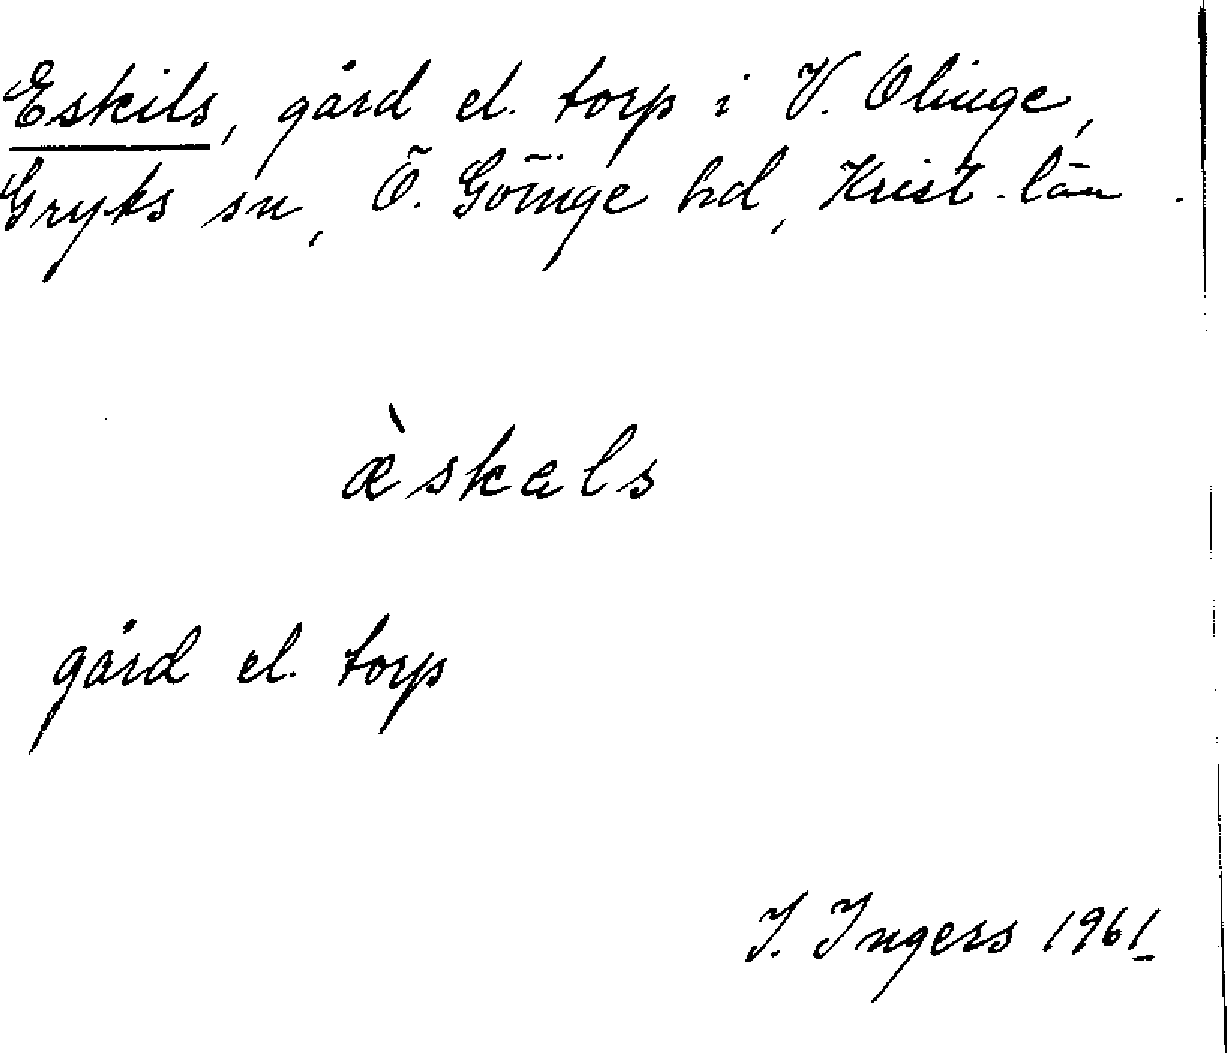 Eskils, gård el. torp i V. Olinge,
Gryts sn, Ö. Göinge hd, Krist. län.
æ̀skəls
gård el. torp
I. Ingers 1961